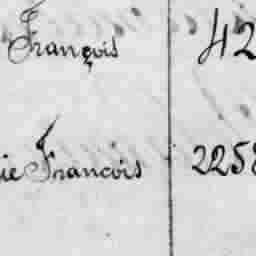 François 42
ie Francois 2258